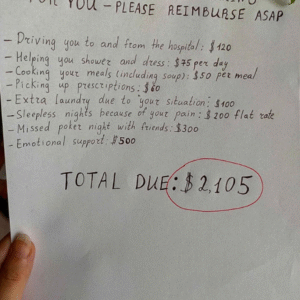 FOR YOU – PLEASE REIMBURSE ASAP
– Driving you to and from the hospital: $120
– Helping you shower and dress: $75 per day
– Cooking your meals (including soup): $50 per meal
– Picking up prescriptions: $60
– Extra laundry due to "your situation": $100
– Sleepless nights because of your pain: $200 flat rate
– Missed poker night with friends: $300
– Emotional support: $500
TOTAL DUE: $2,105